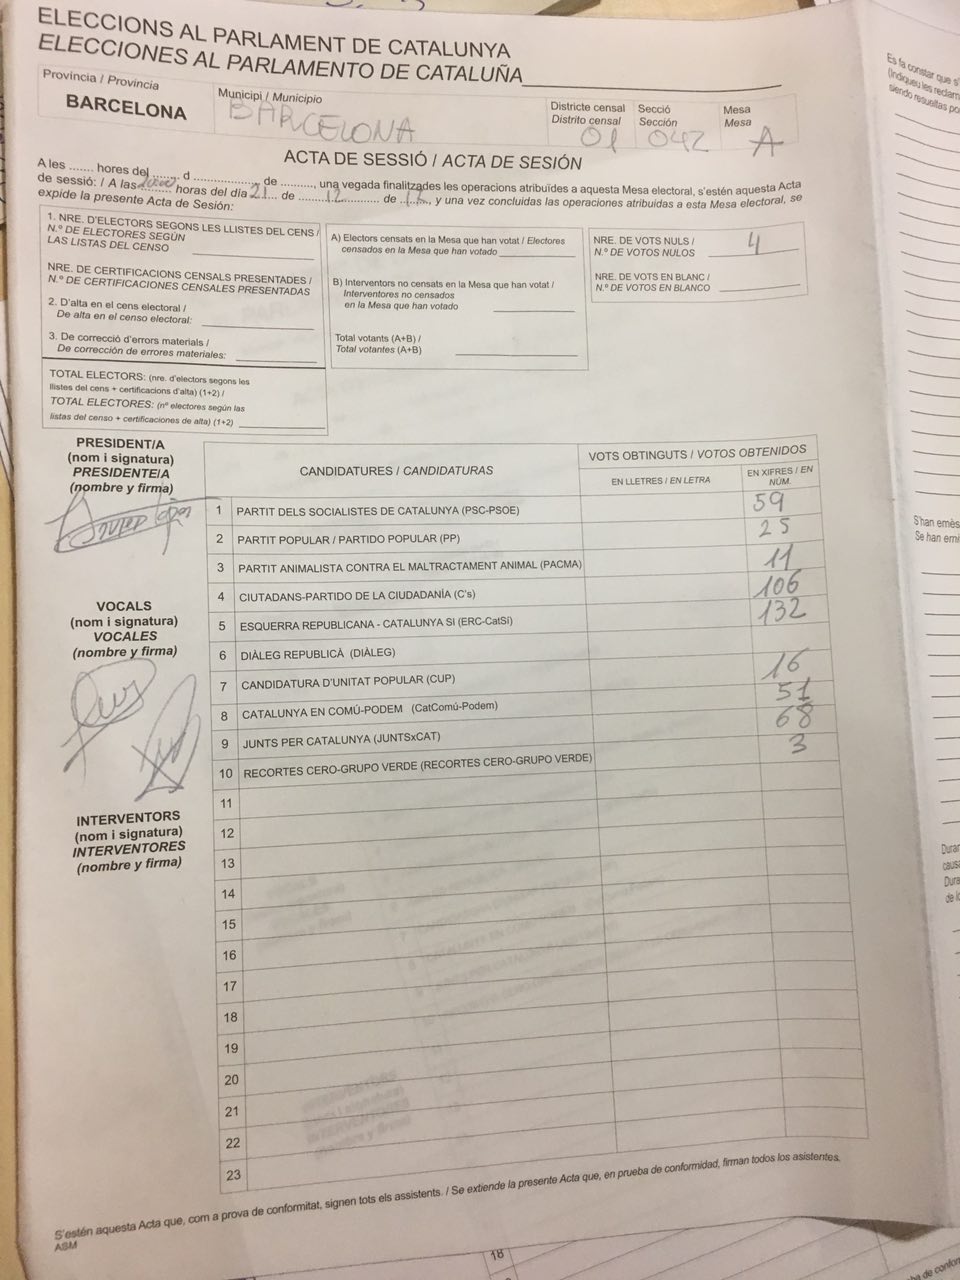 ELECCIONS AL PARLAMENT DE CATALUNYA
ELECCIONES AL PARLAMENTO DE CATALUÑA
Província / Provincia
BARCELONA
Municipi / Municipio
BARCELONA
Districte censal
Distrito censal
01
Secció
Sección
042
Mesa
Mesa
A
ACTA DE SESSIÓ / ACTA DE SESIÓN
A les ....... hores del ......., d ................, de .........., una vegada finalitzades les operacions atribuïdes a aquesta Mesa electoral, s'estén aquesta Acta
de sessió: / A las ......... horas del día 21 de 12 de 17, y una vez concluidas las operaciones atribuidas a esta Mesa electoral, se
expide la presente Acta de Sesión:
1. NRE. D'ELECTORS SEGONS LES LLISTES DEL CENS /
N.º DE ELECTORES SEGÚN
LAS LISTAS DEL CENSO
NRE. DE CERTIFICACIONS CENSALS PRESENTADES /
N.º DE CERTIFICACIONES CENSALES PRESENTADAS
2. D'alta en el cens electoral /
De alta en el censo electoral:
3. De correcció d'errors materials /
De corrección de errores materiales:
TOTAL ELECTORS: (nre. d'electors segons les
llistes del cens + certificacions d'alta) (1+2) /
TOTAL ELECTORES: (nº electores según las
listas del censo + certificaciones de alta) (1+2)
A) Electors censats en la Mesa que han votat / Electores
censados en la Mesa que han votado
B) Interventors no censats en la Mesa que han votat /
Interventores no censados
en la Mesa que han votado
Total votants (A+B) /
Total votantes (A+B)
NRE. DE VOTS NULS /
N.º DE VOTOS NULOS
4
NRE. DE VOTS EN BLANC /
N.º DE VOTOS EN BLANCO
PRESIDENT/A
(nom i signatura)
PRESIDENTE/A
(nombre y firma)
VOCALS
(nom i signatura)
VOCALES
(nombre y firma)
INTERVENTORS
(nom i signatura)
INTERVENTORES
(nombre y firma)
CANDIDATURES / CANDIDATURAS
VOTS OBTINGUTS / VOTOS OBTENIDOS
EN LLETRES / EN LETRA
EN XIFRES / EN
NÚM.
1 PARTIT DELS SOCIALISTES DE CATALUNYA (PSC-PSOE) 59
2 PARTIT POPULAR / PARTIDO POPULAR (PP) 25
3 PARTIT ANIMALISTA CONTRA EL MALTRACTAMENT ANIMAL (PACMA) 11
4 CIUTADANS-PARTIDO DE LA CIUDADANÍA (C's) 106
5 ESQUERRA REPUBLICANA - CATALUNYA SI (ERC-CatSí) 132
6 DIÀLEG REPUBLICÀ (DIÀLEG)
7 CANDIDATURA D'UNITAT POPULAR (CUP) 16
8 CATALUNYA EN COMÚ-PODEM (CatComú-Podem) 51
9 JUNTS PER CATALUNYA (JUNTSxCAT) 68
10 RECORTES CERO-GRUPO VERDE (RECORTES CERO-GRUPO VERDE) 3
11
12
13
14
15
16
17
18
19
20
21
22
23
S'estén aquesta Acta que, com a prova de conformitat, signen tots els assistents. / Se extiende la presente Acta que, en prueba de conformidad, firman todos los asistentes.
ASM
Es fa constar que s'
(Indiqueu les reclam
siendo resueltas po
S'han emès
Se han emi
Duran
causa
Dura
de lo
18
ba de confor